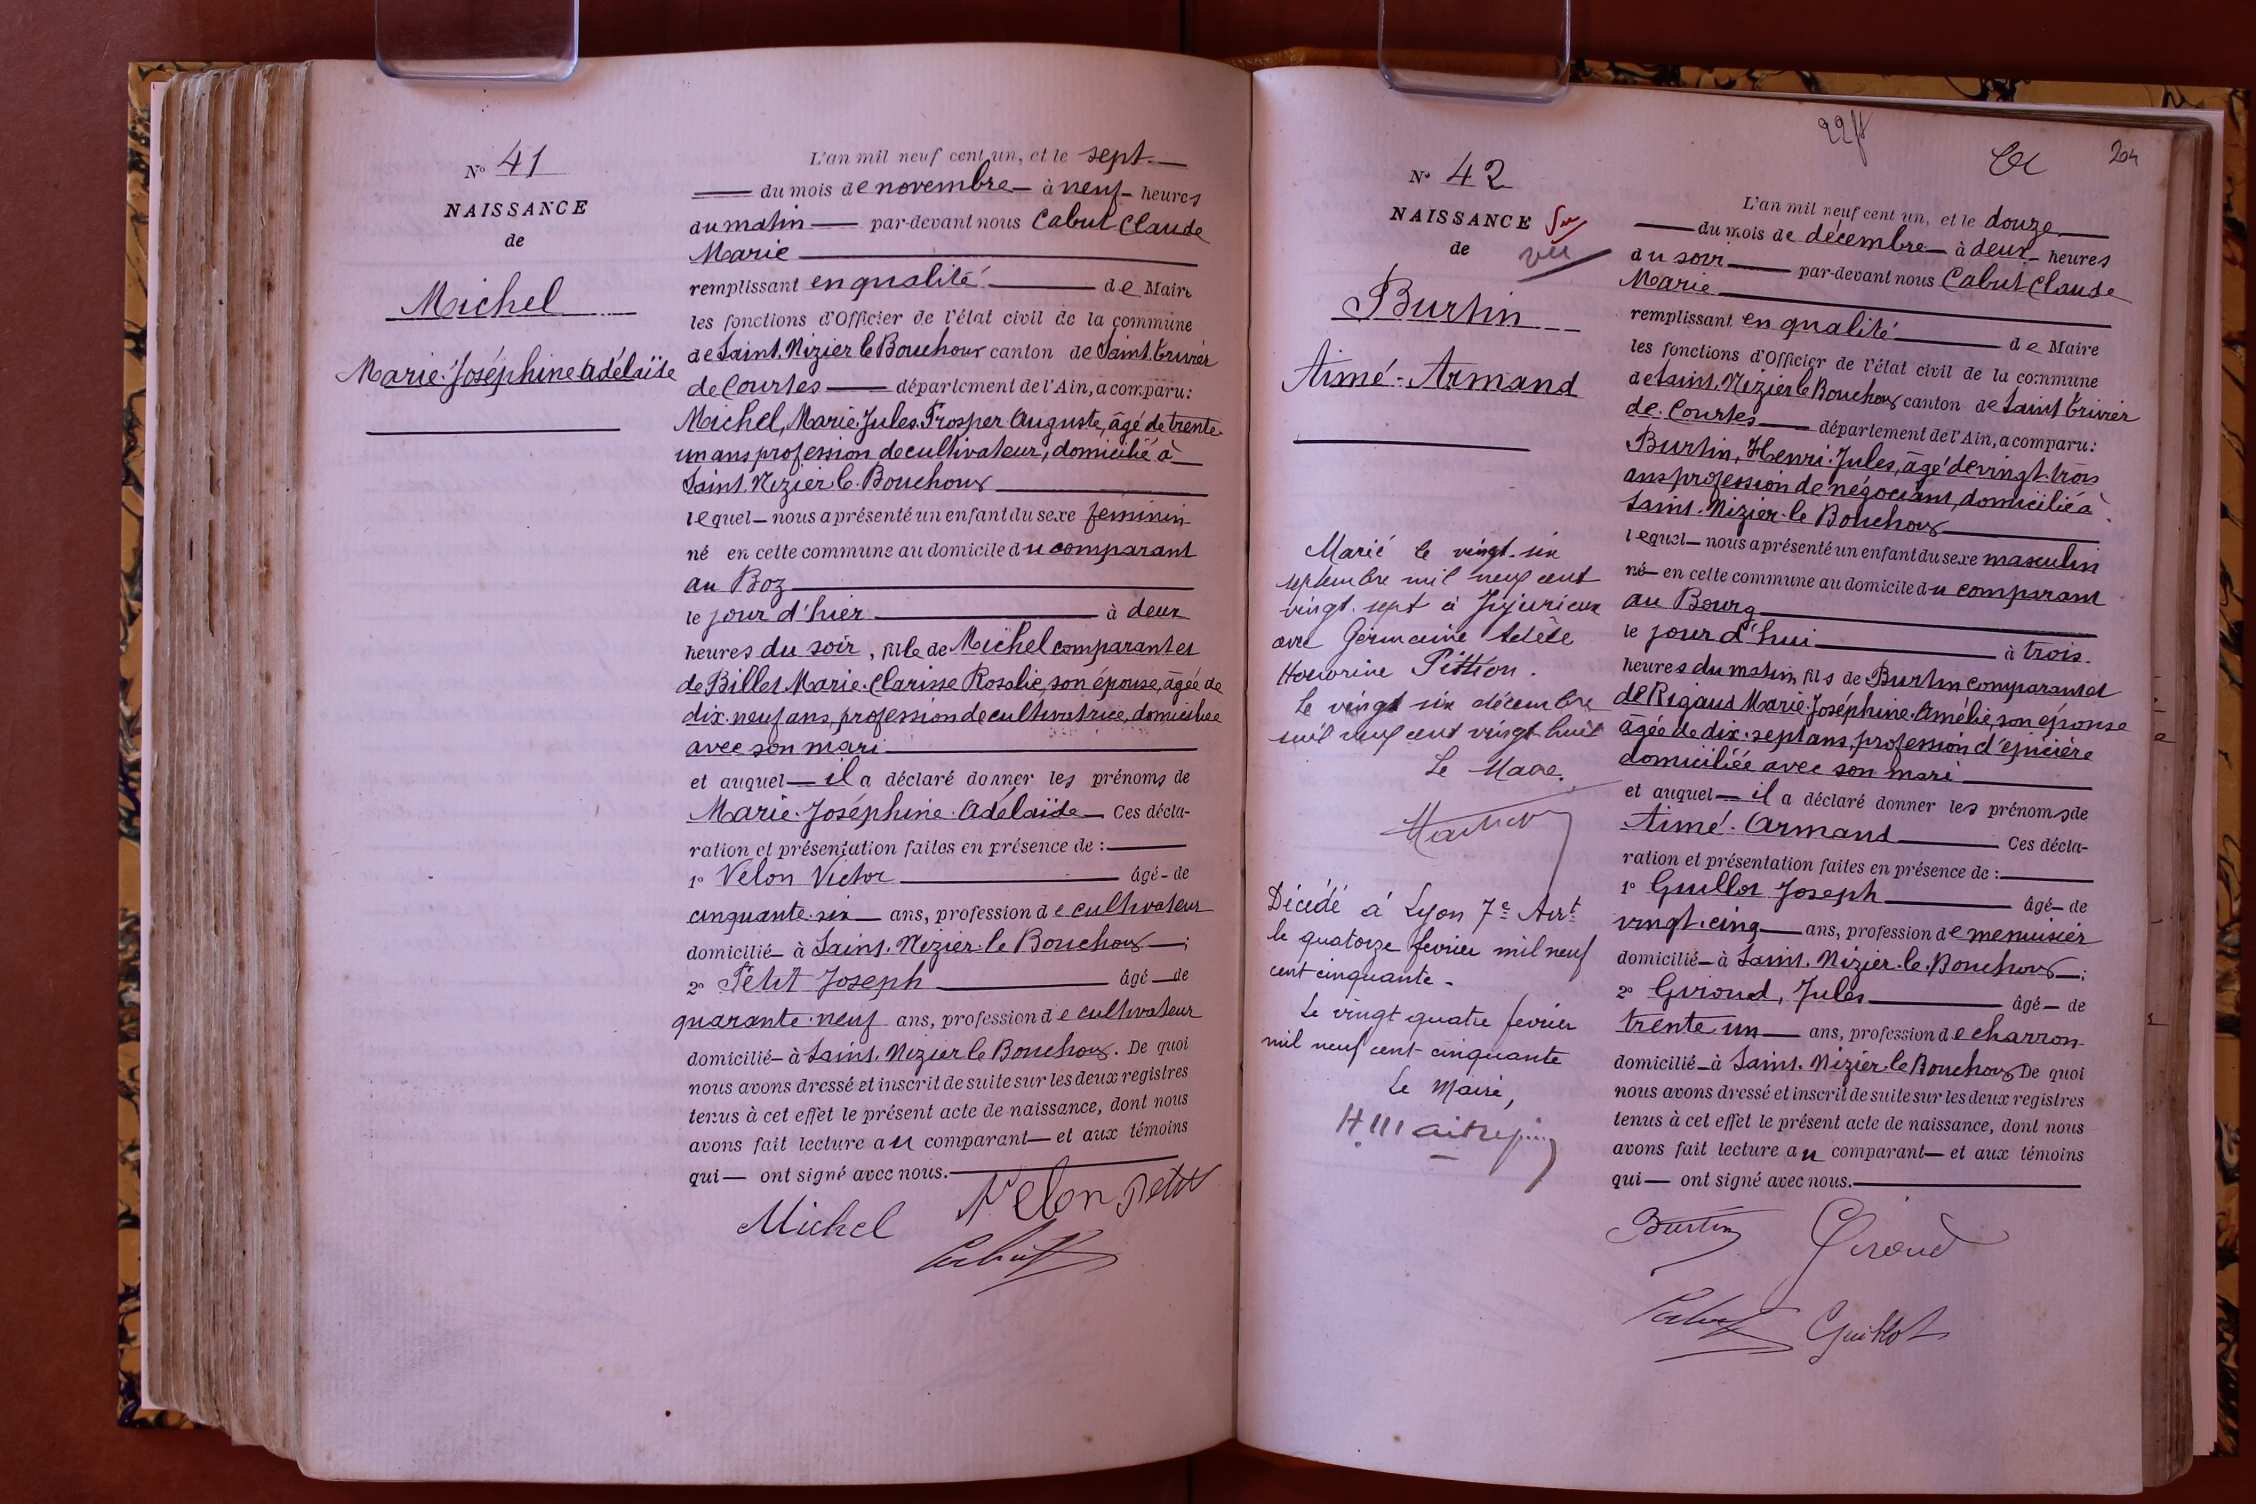 N° 41
NAISSANCE
de
Michel
Marie-Joséphine Adélaïde
L'an mil neuf cent un, et le sept
du mois de novembre à neuf heures
du matin par-devant nous Cabut Claude
Marie
remplissant en qualité de Maire
les fonctions d'Officier de l'état civil de la commune
de Saint-Nizier le Bouchoux canton de Saint Trivier
de Courtes département de l'Ain, a comparu:
Michel, Marie-Jules-Prosper Auguste, âgé de trente
un ans profession de cultivateur, domicilié à
Saint-Nizier le Bouchoux
lequel nous a présenté un enfant du sexe féminin
né en cette commune au domicile du comparant
au Boz
le jour d'hier à deux
heures du soir, fille de Michel comparant et
de Billet Marie-Clarisse Rosalie, son épouse, âgée de
dix-neuf ans, profession de cultivatrice, domiciliée
avec son mari
et auquel il a déclaré donner les prénoms de
Marie-Joséphine-Adélaïde Ces décla-
ration et présentation faites en présence de :
1° Vélon Victor âgé de
cinquante-six ans, profession de cultivateur
domicilié à Saint-Nizier-le Bouchoux ;
2° Petit Joseph âgé de
quarante-neuf ans, profession de cultivateur
domicilié à Saint-Nizier le Bouchoux. De quoi
nous avons dressé et inscrit de suite sur les deux registres
tenus à cet effet le présent acte de naissance, dont nous
avons fait lecture au comparant et aux témoins
qui ont signé avec nous.
Michel Velon Petit
Cabut
204
N° 42
NAISSANCE
de vu
Burtin
Aimé-Armand
Marié le vingt-six
septembre mil neuf cent
vingt-sept à Jujurieux
avec Germaine Adèle
Honorine Pittion.
Le vingt six décembre
mil neuf cent vingt huit
Le Maire.
Décédé à Lyon 7e Arrt
le quatorze février mil neuf
cent cinquante.
Le vingt quatre février
mil neuf cent cinquante
Le Maire,
L'an mil neuf cent un, et le douze
du mois de décembre à deux heures
du soir par-devant nous Cabut Claude
Marie
remplissant en qualité de Maire
les fonctions d'Officier de l'état civil de la commune
de Saint-Nizier le Bouchoux canton de Saint Trivier
de Courtes département de l'Ain, a comparu:
Burtin, Henri-Jules, âgé de vingt-trois
ans profession de négociant, domicilié à
Saint-Nizier-le Bouchoux
lequel nous a présenté un enfant du sexe masculin
né en cette commune au domicile du comparant
au Bourg
le jour d'hui à trois
heures du matin, fils de Burtin comparant et
de Rigaud Marie-Joséphine-Amélie, son épouse
âgée de dix-sept ans, profession d'épicière
domiciliée avec son mari
et auquel il a déclaré donner les prénoms de
Aimé-Armand Ces décla-
ration et présentation faites en présence de :
1° Guillot Joseph âgé de
vingt-cinq ans, profession de menuisier
domicilié à Saint-Nizier-le-Bouchoux ;
2° Giroud, Jules âgé de
trente un ans, profession de charron
domicilié à Saint-Nizier-le Bouchoux De quoi
nous avons dressé et inscrit de suite sur les deux registres
tenus à cet effet le présent acte de naissance, dont nous
avons fait lecture au comparant et aux témoins
qui ont signé avec nous.
Burtin Giroud
Cabut Guillot